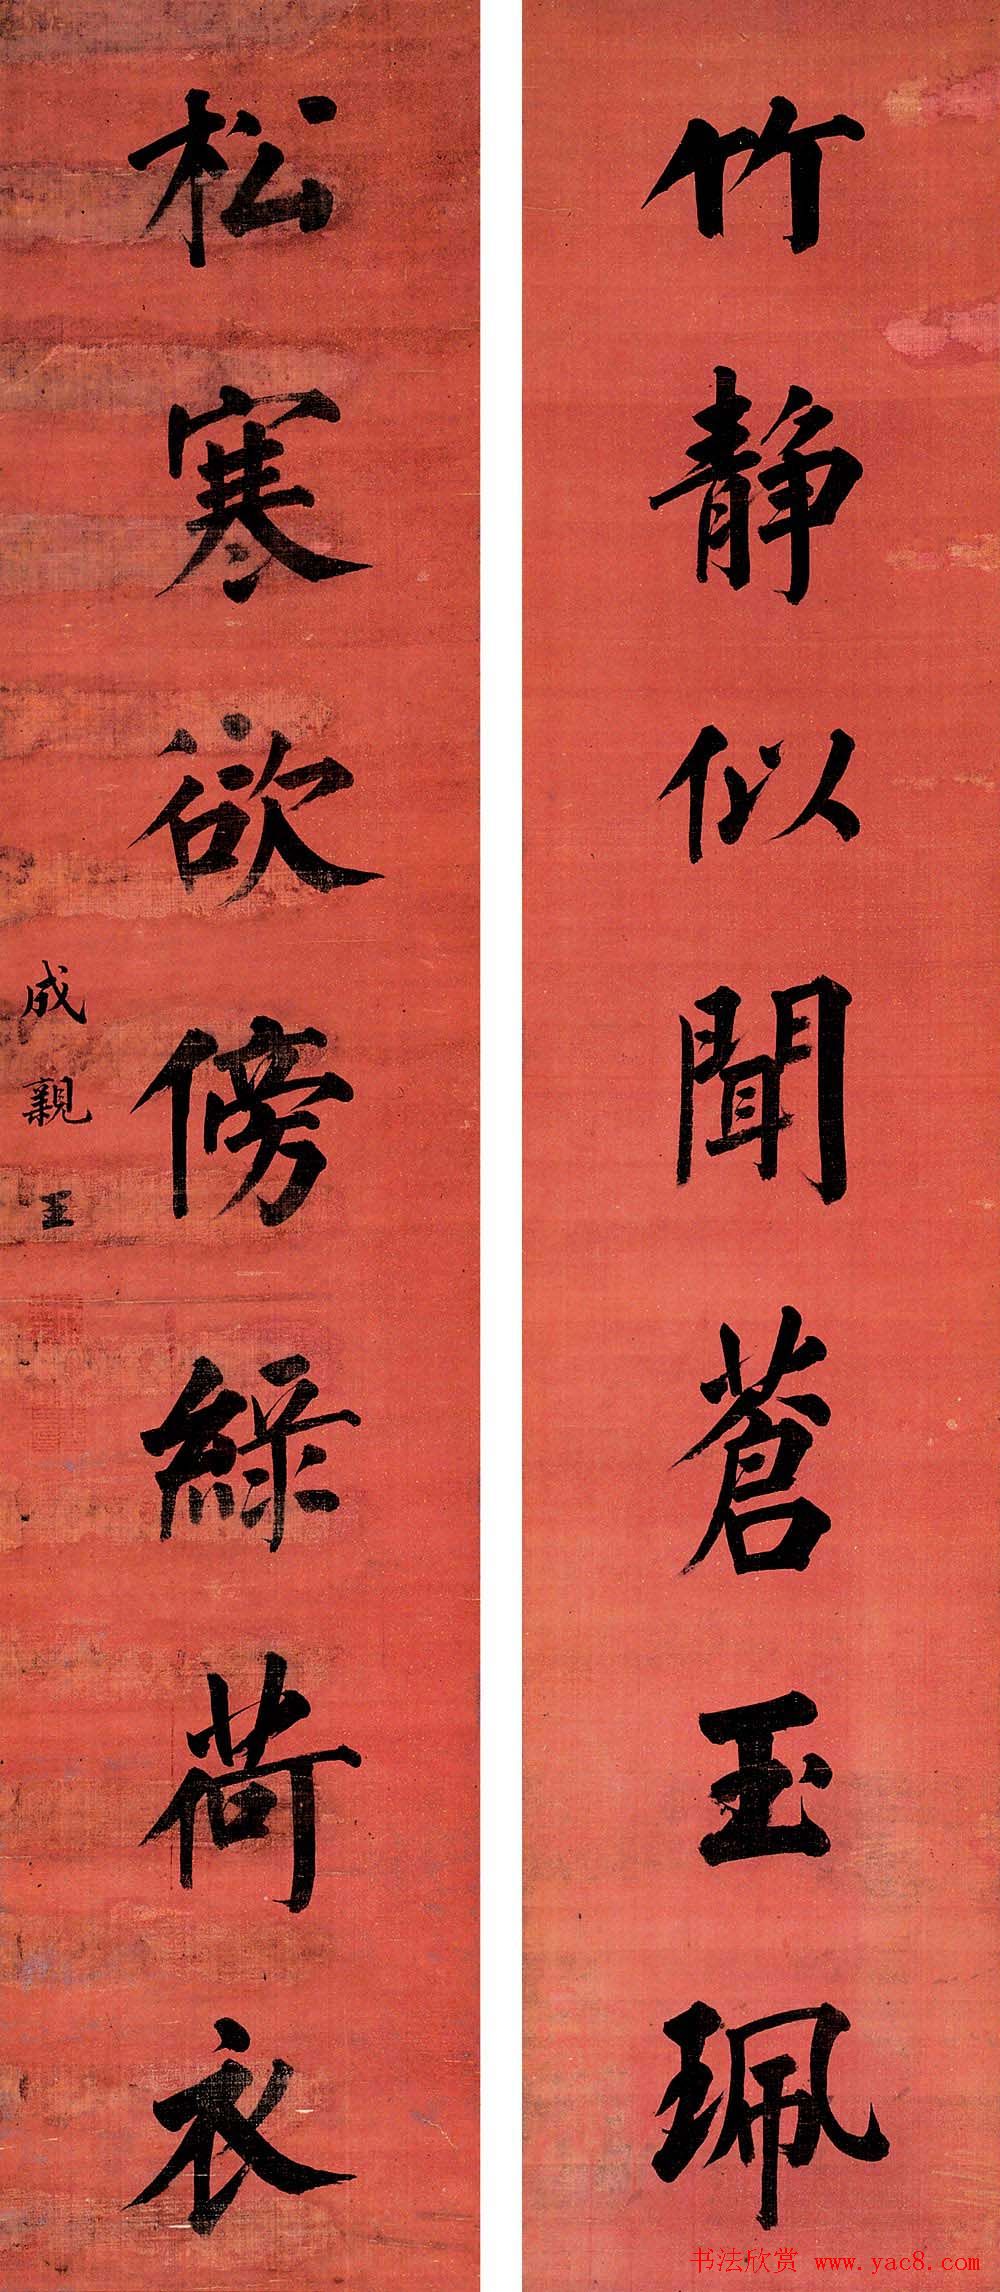 竹靜似聞蒼玉珮
松寒欲傍綠荷衣
成親王
书法欣赏 www.yac8.com